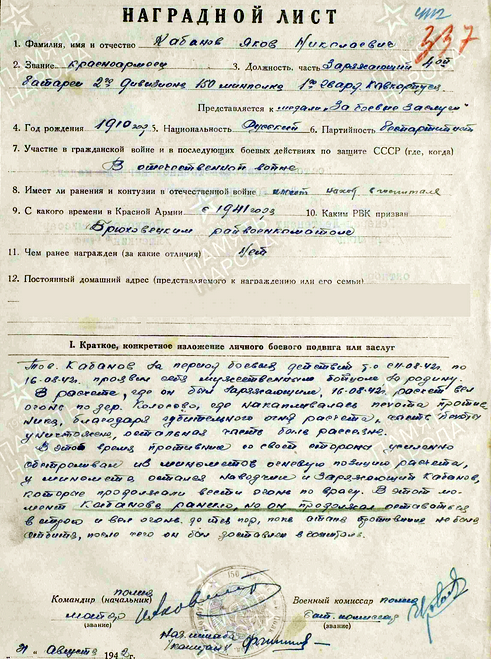 НАГРАДНОЙ ЛИСТ
337
1. Фамилия, имя и отчество Кабанов Яков Николаевич
2. Звание красноармеец 3. Должность, часть Заряжающий 4ой
батареи 2го дивизиона 150 минполка 1го гвард. Кавкорпуса
Представляется к медали „За боевые заслуги"
4. Год рождения 1910 5. Национальность Русский 6. Партийность беспартийный
7. Участие в гражданской войне и в последующих боевых действиях по защите СССР (где, когда)
В отечественной войне
8. Имеет ли ранения и контузии в отечественной войне имеет наход. в госпитале
9. С какого времени в Красной Армии с 1941 года 10. Каким РВК призван
Брюховецким райвоенкоматом
11. Чем ранее награжден (за какие отличия) Нет
12. Постоянный домашний адрес (представляемого к награждению или его семьи)
I. Краткое, конкретное изложение личного боевого подвига или заслуг
Тов. Кабанов за период боевых действий с 11.08.42г. по
16.08.42г. проявил себя мужественным бойцом за родину.
В расчете, где он был заряжающим, 16.08.42г. расчет вел
огонь по дер. Колосово, где накапливалась пехота против
ника, благодаря убительному огня расчета, часть пехоты
уничтожена, остальная часть была рассеяна.
В это время противник со своей стороны усиленно
обстреливал из минометов огневую позицию расчета,
у миномета остался наводчик и заряжающий Кабанов,
которые продолжали вести огонь по врагу. В этот мо-
мент Кабанова ранило, но он продолжал оставаться
в строю и вел огонь до тех пор, пока атака противника не была
отбита, после чего он был доставлен в госпиталь.
полка
Командир (начальник) Военный комиссар полка
майор бат. комиссар
(звание) (звание)
150
Нач. штаба
капитан
21 „ Августа 1942 г.